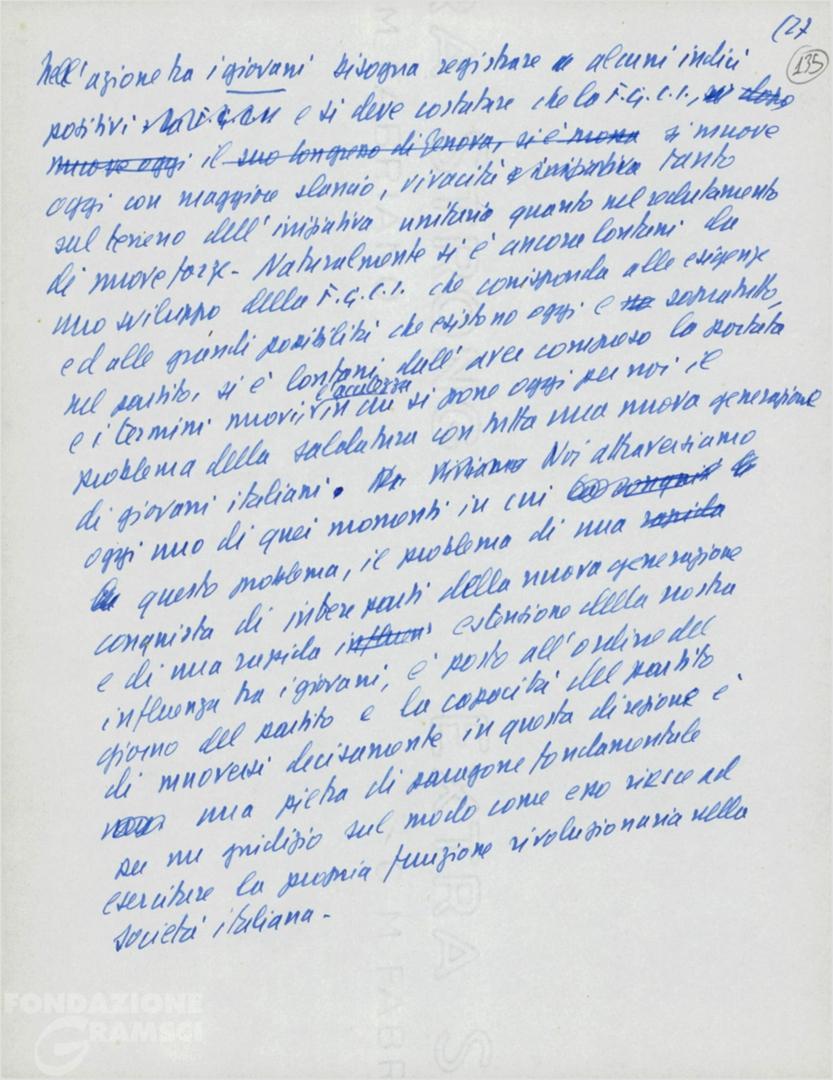 127
135
Nell'azione tra i giovani bisogna registrare alcuni indici
positivi e si deve costatare che la F.G.C.I., si dopo
nuove oggi il suo congresso di Genova, si è mossa si muove
oggi con maggiore slancio, vivacità e iniziativa tanto
sul terreno dell'iniziativa unitaria quanto nel reclutamento
di nuove forze. Naturalmente si è ancora lontani da
uno sviluppo della F.G.C.I. che corrisponda alle esigenze
ed alle grandi possibilità che esistono oggi e soprattutto,
nel partito, si è lontani dall'aver compreso la portata
e i termini nuovi, in cui si pone oggi per noi il
e l'acutezza
problema della saldatura con tutta una nuova generazione
di giovani italiani. Viviamo Noi attraversiamo
oggi uno di quei momenti in cui la conquista
questo problema, il problema di una rapida
conquista di intere parti della nuova generazione
e di una rapida influenz estensione della nostra
influenza tra i giovani, è posto all'ordine del
giorno del partito e la capacità del partito
di muoversi decisamente in questa direzione è
una pietra di paragone fondamentale
per un giudizio sul modo come esso riesce ad
esercitare la propria funzione rivoluzionaria nella
società italiana.
FONDAZIONE
GRAMSCI